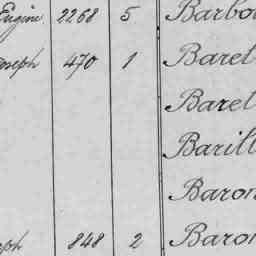 Eugène 2268 5 Barbo
Joseph 470 1 Baret
Baret
Barill
Baron
eph 848 2 Baron